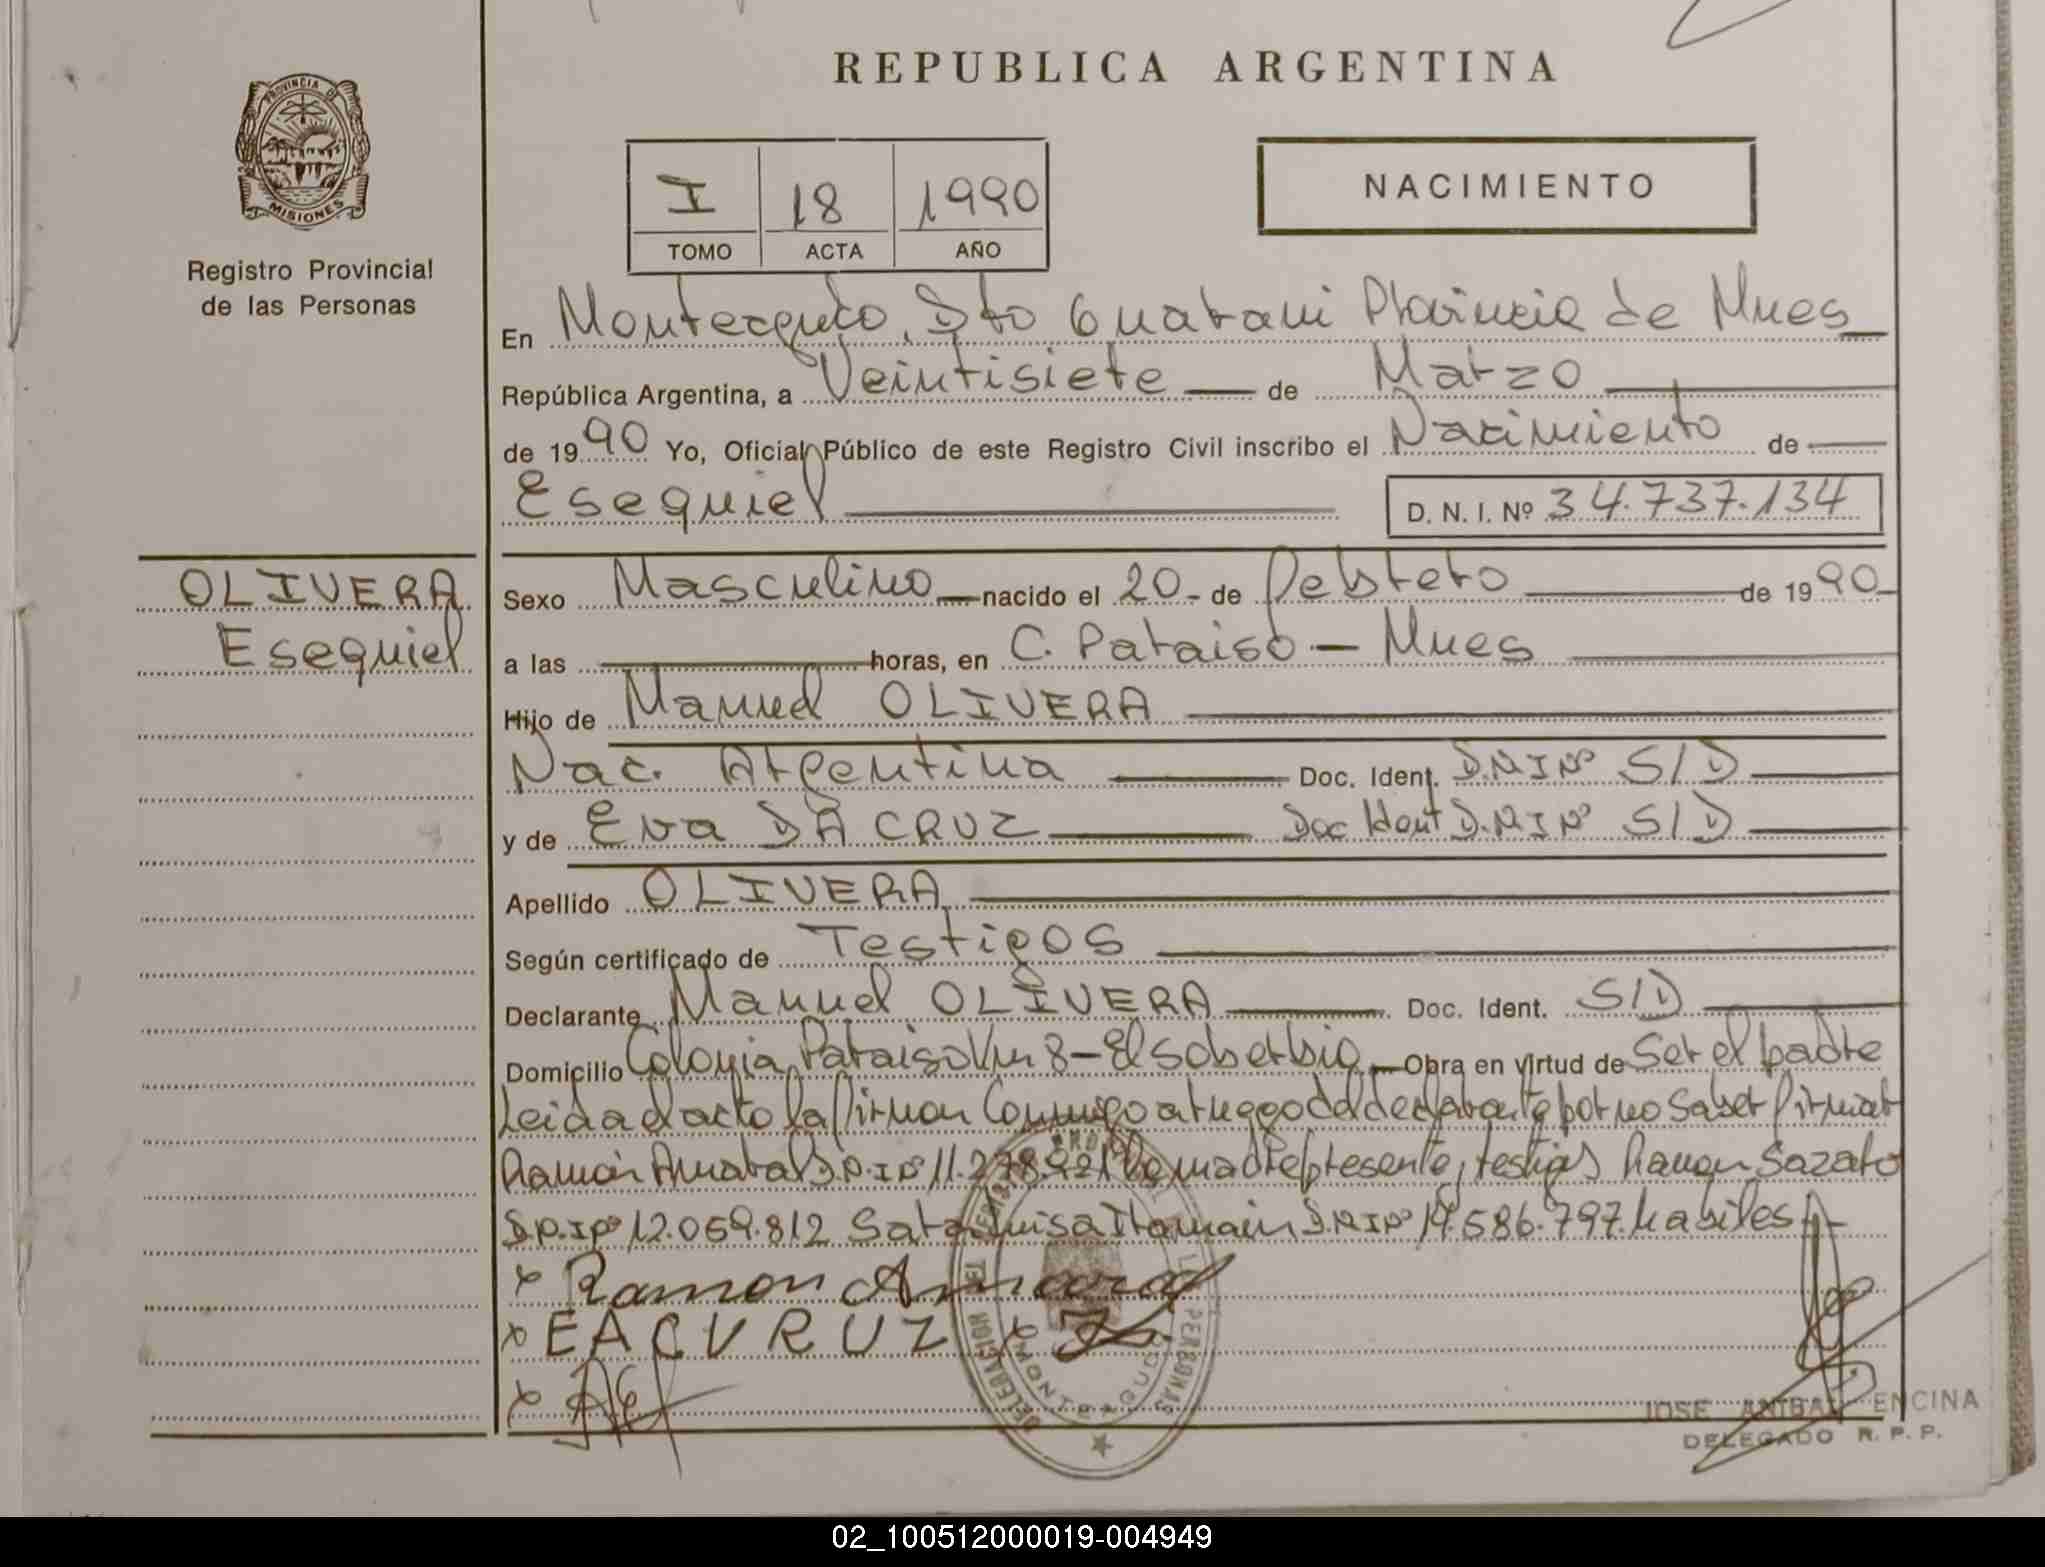 REPUBLICA ARGENTINA
PROVINCIA DE
MISIONES
Registro Provincial
de las Personas
I 18 1990
TOMO ACTA AÑO
NACIMIENTO
En Monteagudo, Dto Guarani Provincia de Mnes
República Argentina, a Veintisiete de Marzo
de 1990 Yo, Oficial Público de este Registro Civil inscribo el Nacimiento de
Esequiel D. N. I. Nº 34.737.134
OLIVERA
Esequiel
Sexo Masculino nacido el 20 de Febrero de 1990
a las horas, en C. Paraiso - Mnes
Hijo de Manuel OLIVERA
Nac. Argentina Doc. Ident. D.N.I Nº S/D
y de Eva DA CRUZ Doc Ident D.N.I Nº S/D
Apellido OLIVERA
Según certificado de Testigos
Declarante Manuel OLIVERA Doc. Ident. S/D
Domicilio Colonia Paraiso Km 8 - El Soberbio Obra en virtud de Ser el padre
Leida el acto la firman Conmigo a ruego del declarante por no saber firmar
Ramón Amaral D.N.I Nº 11.278.921 la madre presente, testigos Ramon Sazaro
D.N.I Nº 12.059.812 Sara Luisa D.N.I Nº 586.797 habiles
x Ramon Amaral
x EACVRUZ x
x
DELEGACION PERSONAS
MONTEAGUDO
JOSE ANIBAL ENCINA
DELEGADO R. P. P.
02_100512000019-004949